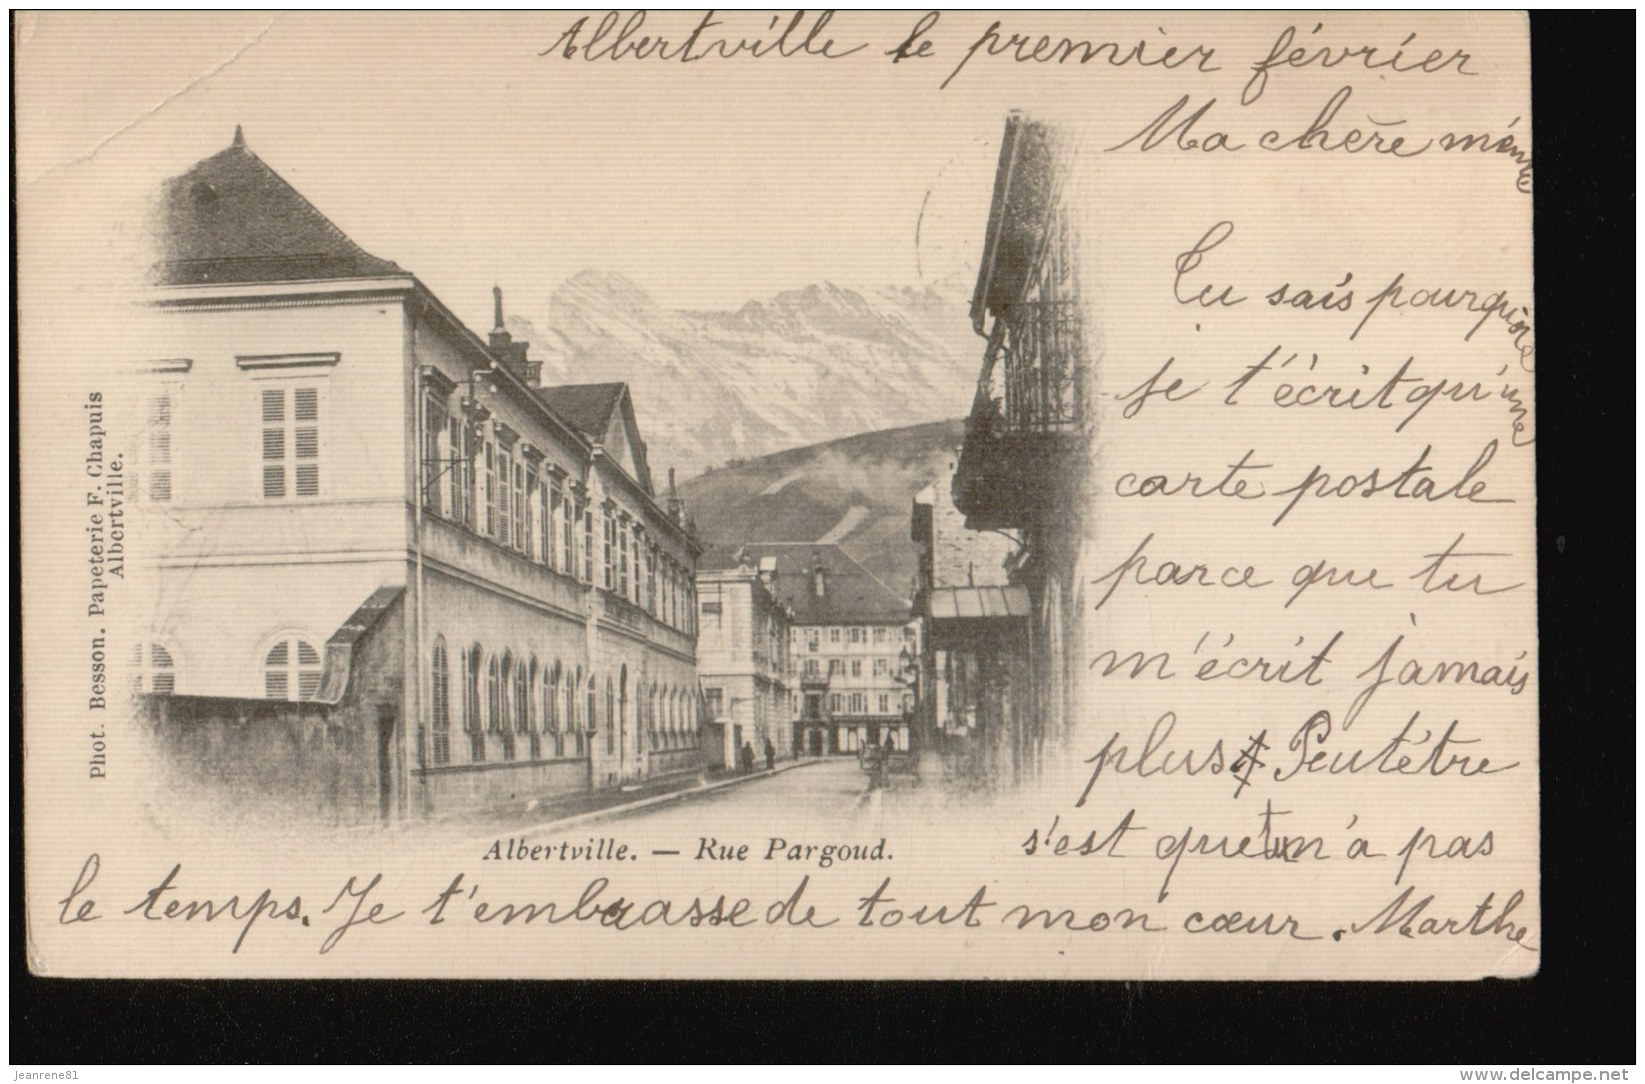 Albertville le premier février
Ma chère mémé
Tu sais pourquoi
je ne t'écrit qu'une
carte postale
parce que tu
m'écrit jamais
plus Peut'être
s'est que tu n'a pas
le temps. Je t'embrasse de tout mon cœur. Marthe
Albertville. — Rue Pargoud.
Phot. Besson. Papeterie F. Chapuis
Albertville.
jeanrene81
www.delcampe.net